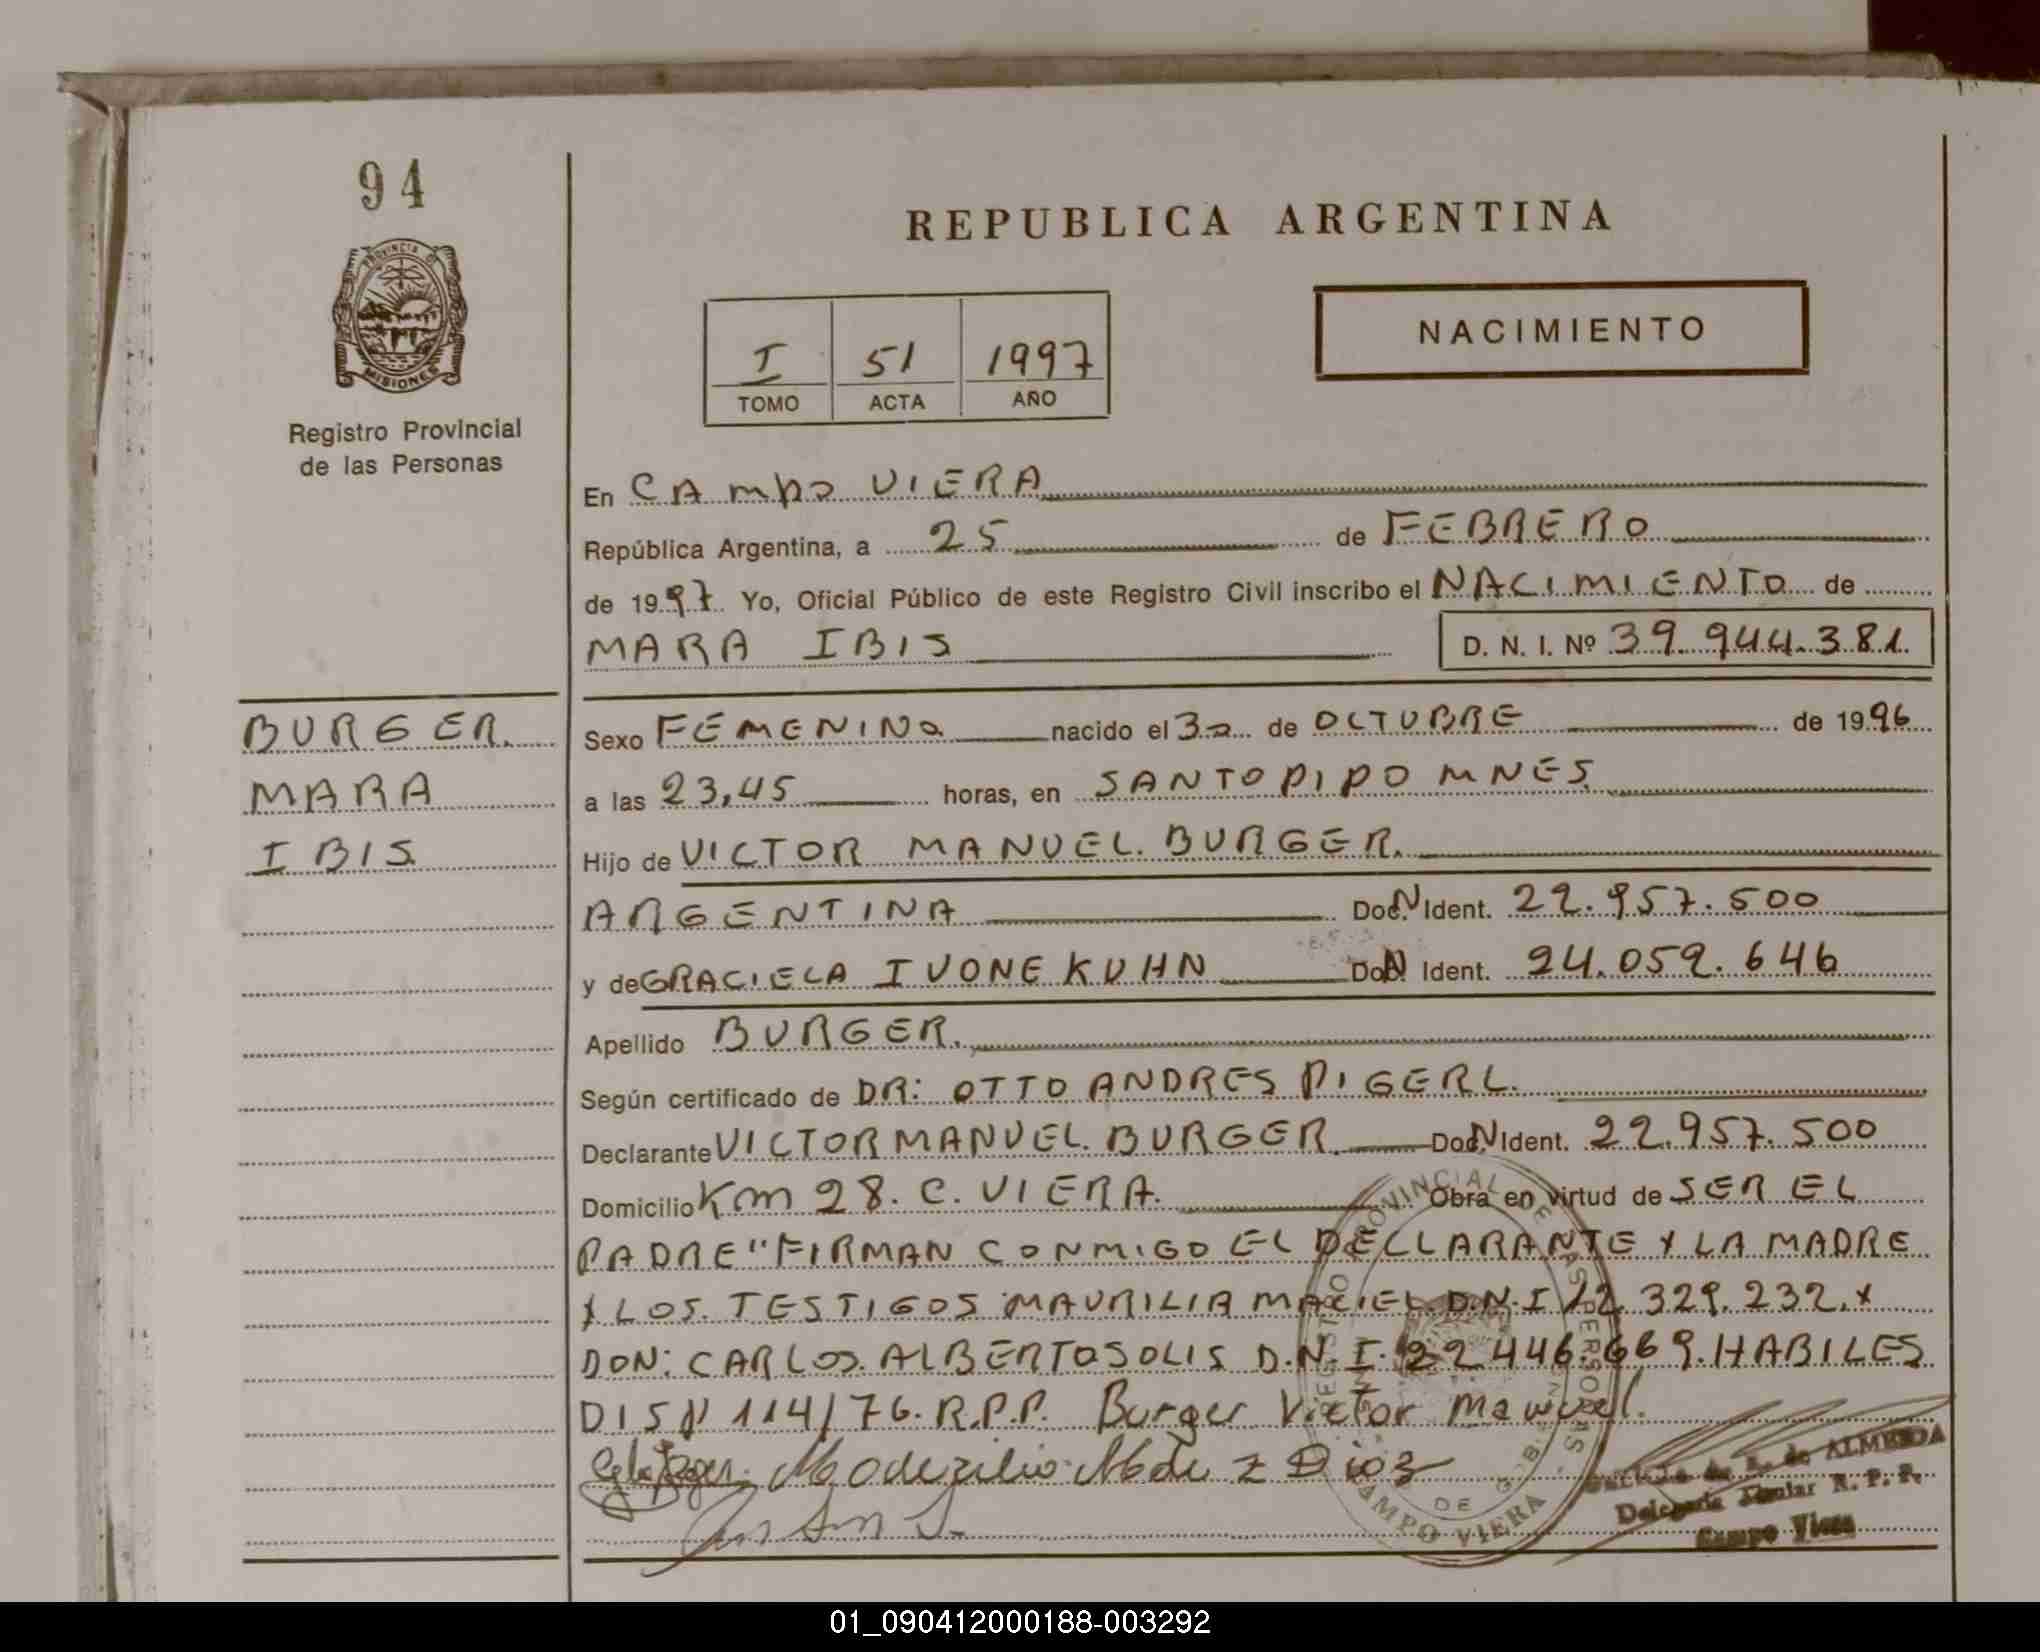 94
REPUBLICA ARGENTINA
PROVINCIA DE
MISIONES
Registro Provincial
de las Personas
NACIMIENTO
I 51 1997
TOMO ACTA AÑO
En CAMPO VIERA
República Argentina, a 25 de FEBRERO
de 1997 Yo, Oficial Público de este Registro Civil inscribo el NACIMIENTO de
MARA IBIS D. N. I. Nº 39.944.381.
BURGER.
MARA
IBIS
Sexo FEMENINO nacido el 30 de OCTUBRE de 1996
a las 23,45 horas, en SANTO PIPO MNES.
Hijo de VICTOR MANUEL BURGER.
ARGENTINA Doc.N Ident. 22.957.500
y de GRACIELA IVONE KUHN Doc.N Ident. 24.059.646
Apellido BURGER.
Según certificado de DR: OTTO ANDRES PIGERL.
Declarante VICTOR MANUEL BURGER. Doc.N Ident. 22.957.500
Domicilio Km 28. C. VIERA. Obra en virtud de SER EL
PADRE "FIRMAN CONMIGO EL DECLARANTE Y LA MADRE
Y LOS TESTIGOS MAURILIA MACIEL D.N.I 22.329.232. Y
DON: CARLOS ALBERTO SOLIS D.N.I. 22.446.669. HABILES
DIS N 114/76. R.P.P. Burger Victor Manuel.
REGISTRO PROVINCIAL DE LAS PERSONAS
CAMPO VIERA
de ALMEIDA
Delegada Titular R. P. P.
Campo Viera
01_090412000188-003292